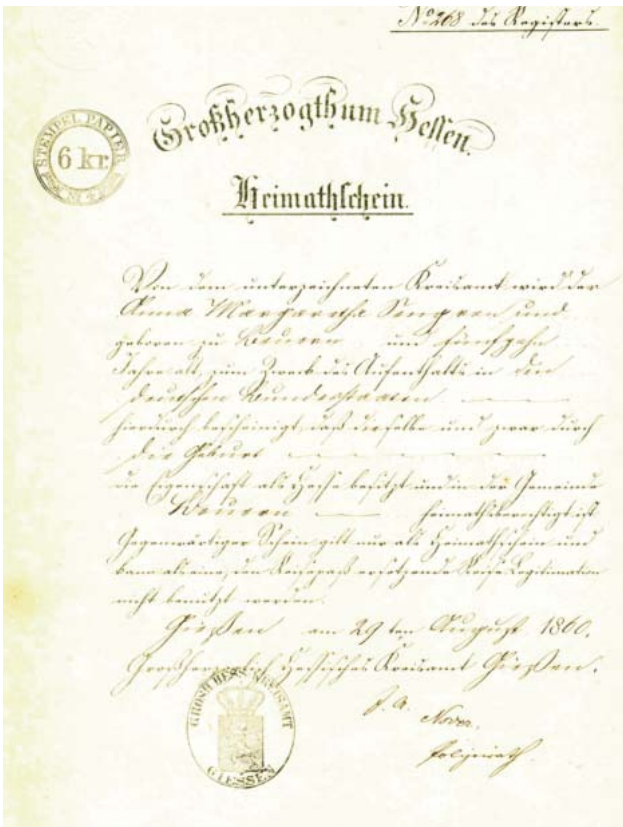 No 268 des Registers.
STEMPEL PAPIER
6 kr.
Großherzogthum Hessen.
Heimathschein.
Von dem unterzeichneten Kreisamt wird der
Anna Margaretha und
geboren zu Beuern und fünfzehn
Jahre alt, zum Zweck des Aufenthalts in den
deutschen Bundesstaaten
hierdurch bescheinigt, daß dieselbe und zwar durch
die Geburt
die Eigenschaft als Hesse besitzt und in der Gemeinde
Beuern heimathsberechtigt ist.
Gegenwärtiger Schein gilt nur als Heimathschein und
kann als eine, den Reisepaß ersetzende Reise-Legitimation
nicht benutzt werden.
Gießen am 29 ten August 1860.
Großherzoglich Hessisches Kreisamt Gießen.
GROSH. HESS. KREISAMT
GIESSEN
J. A.
Nover.